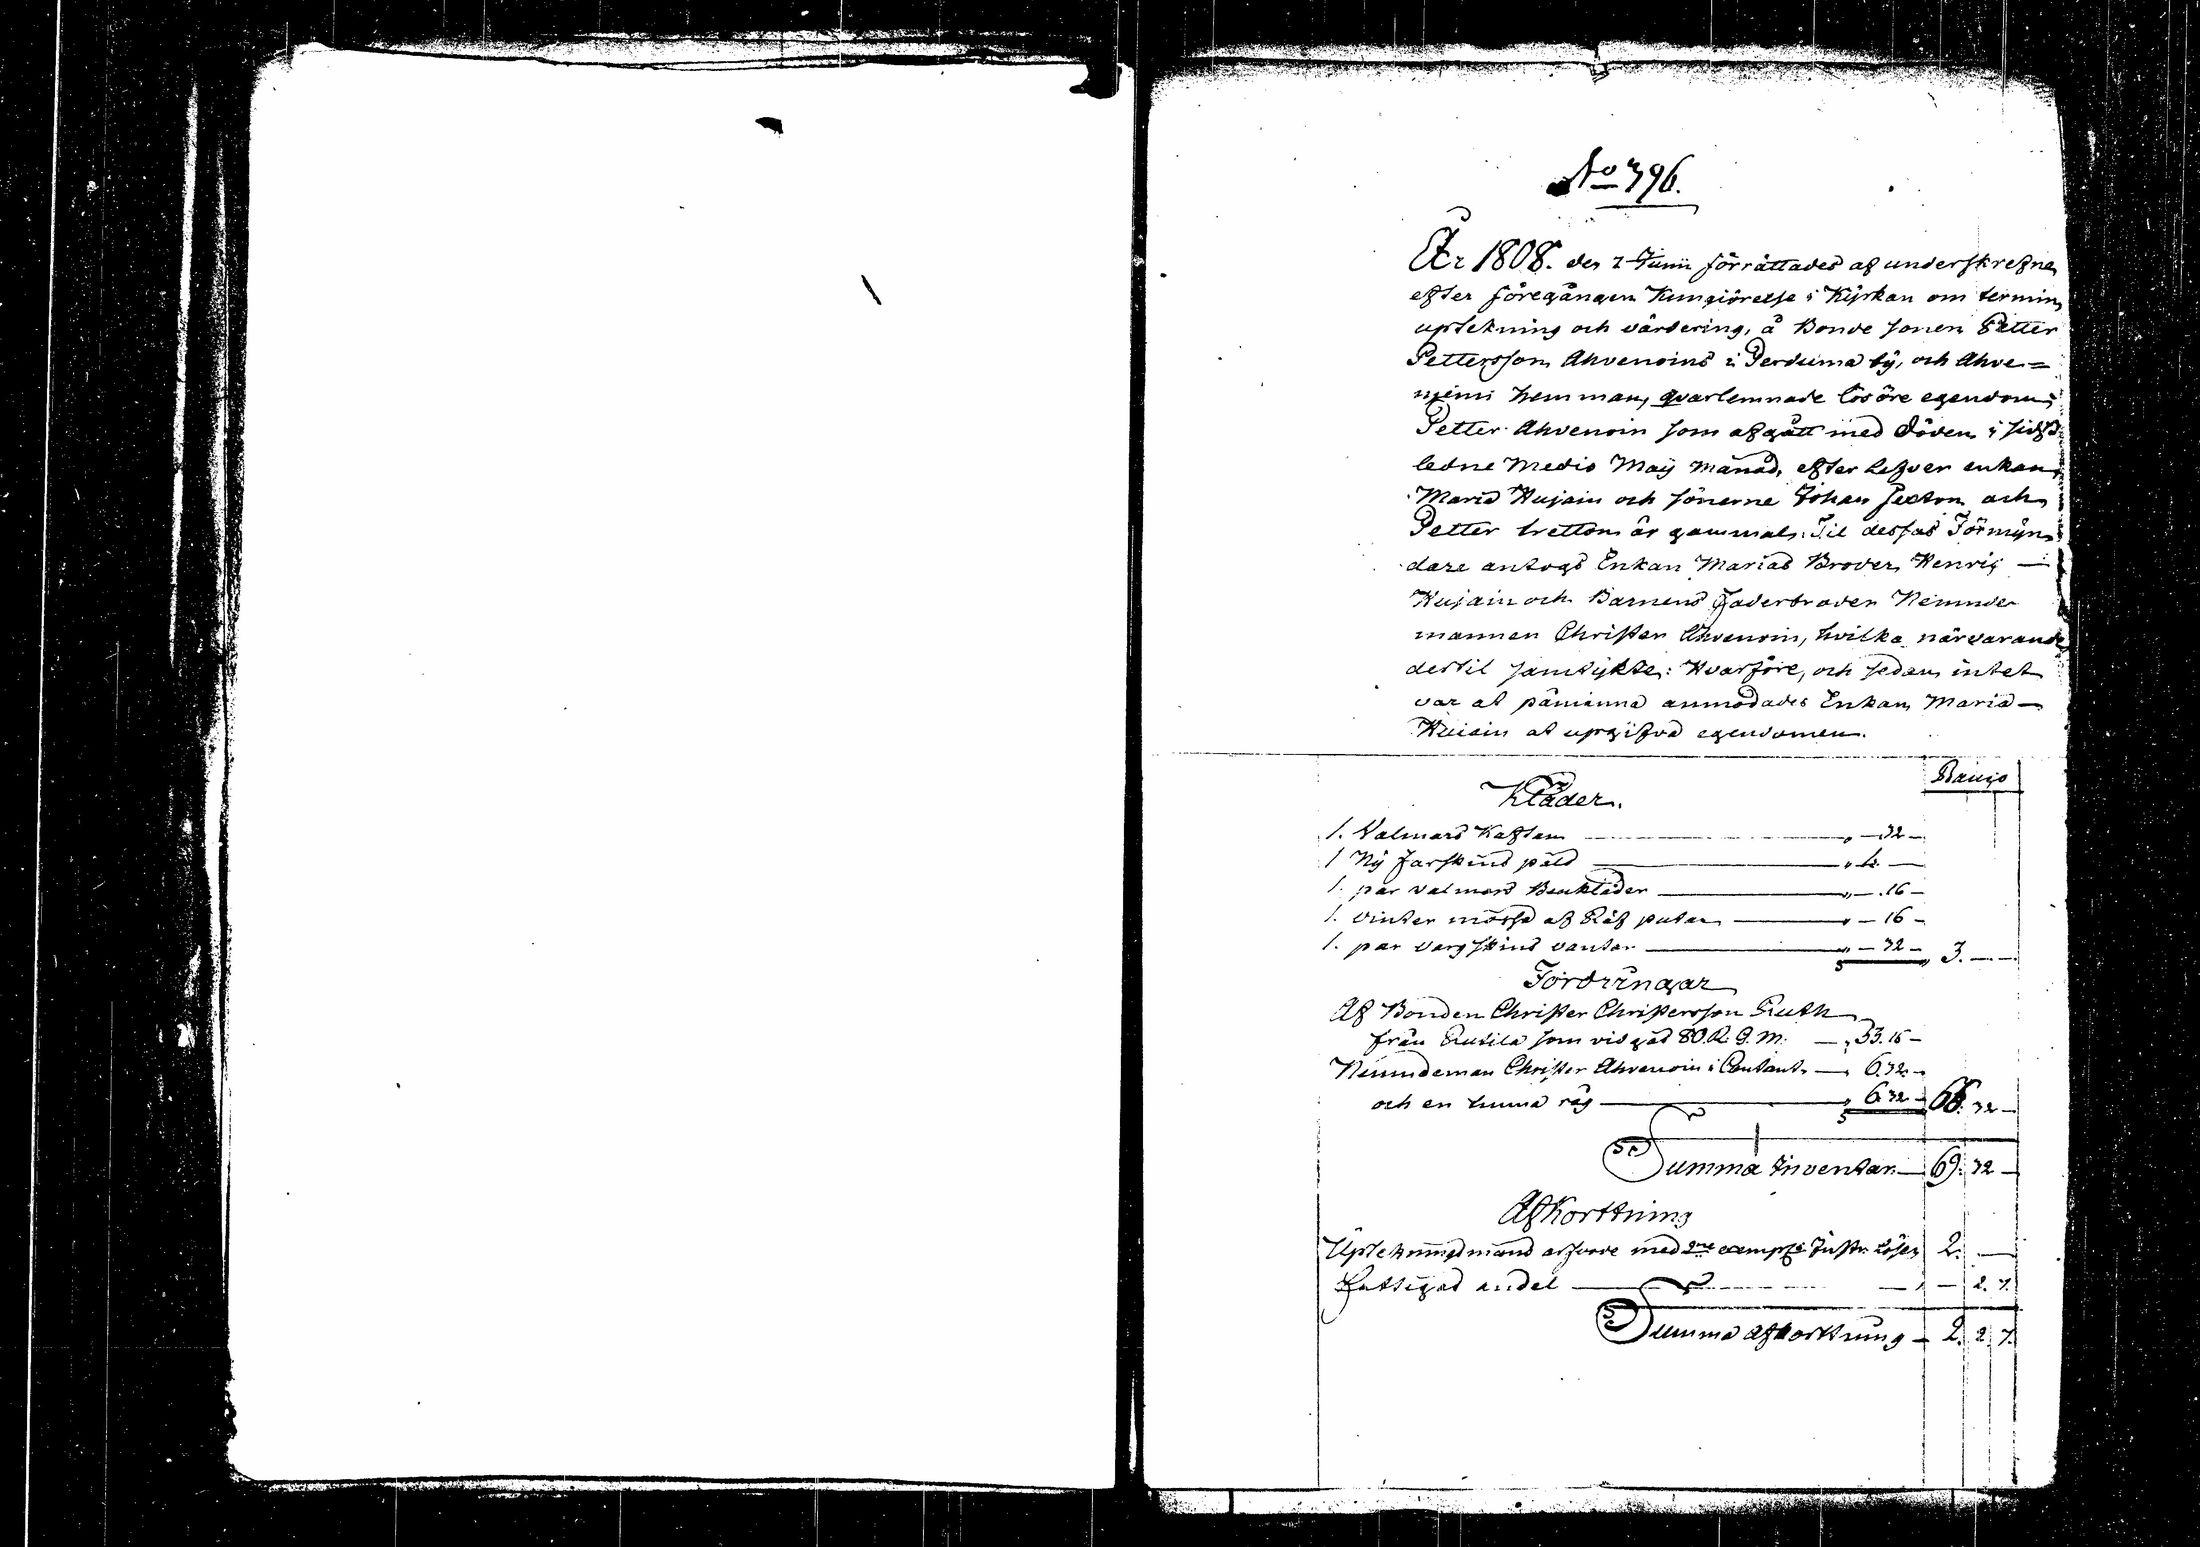 No 396.
År 1808. den 2 Junii förrättades af underskrefne,
efter föregången Kungiörelse i Kÿrkan om termin,
uptekning och värdering, å Bonde sonen Petter
Pettersson Ahvenoins i Perduma bÿ, och Ahve=
niemi hemman, qvarlemnade lösöre egendom;
Petter Ahvenoin som afgått med döden i sidst-
ledne Medio Maÿ månad, efter lefver enkan,
Maria Hujain och sönerne Johan sexton och
Petter tretton år gammal. Til dessas Förmÿn-
dare antogs Enkan Marias Broder, Henric —
Hujain och Barnens Faderbroder Nemnde-
mannen Christer Ahvenoin, hvilka närvarande
dertil samtÿkte: Hvarföre, och sedan intet
var at påminna anmodades Enkan Maria —
Huiain at upgifva egendomen.
Banco
Kläder.
1. Valmars Kaftan — „ — 32 —
1 Nÿ Farskinds päls — „ 1. —
1. par valmars Benkläder — „ — .16 —
1. vinter mössa af Räf putan — „ — 16 —
1. par vargskinds vantar — „ — 32 — 3. — —
Fordringar
Af Bonden Christer Christersson Ruth
från Rutila som vidgås 80. R. G. M. — „ 53. 16 —
Nemndeman Christer Ahvenoin i Contant — „ 6.32. —
och en tunna råg — „ 6.32 — 66. 32 —
Summa Inventar. — 69. 32 —
Afkorttning
Uptekningsmans arfvode med 2ne exempl: lösen 2. —
Fattigas andel — „ — 2. 7.
Summa afkorttning — 2. 2. 7.